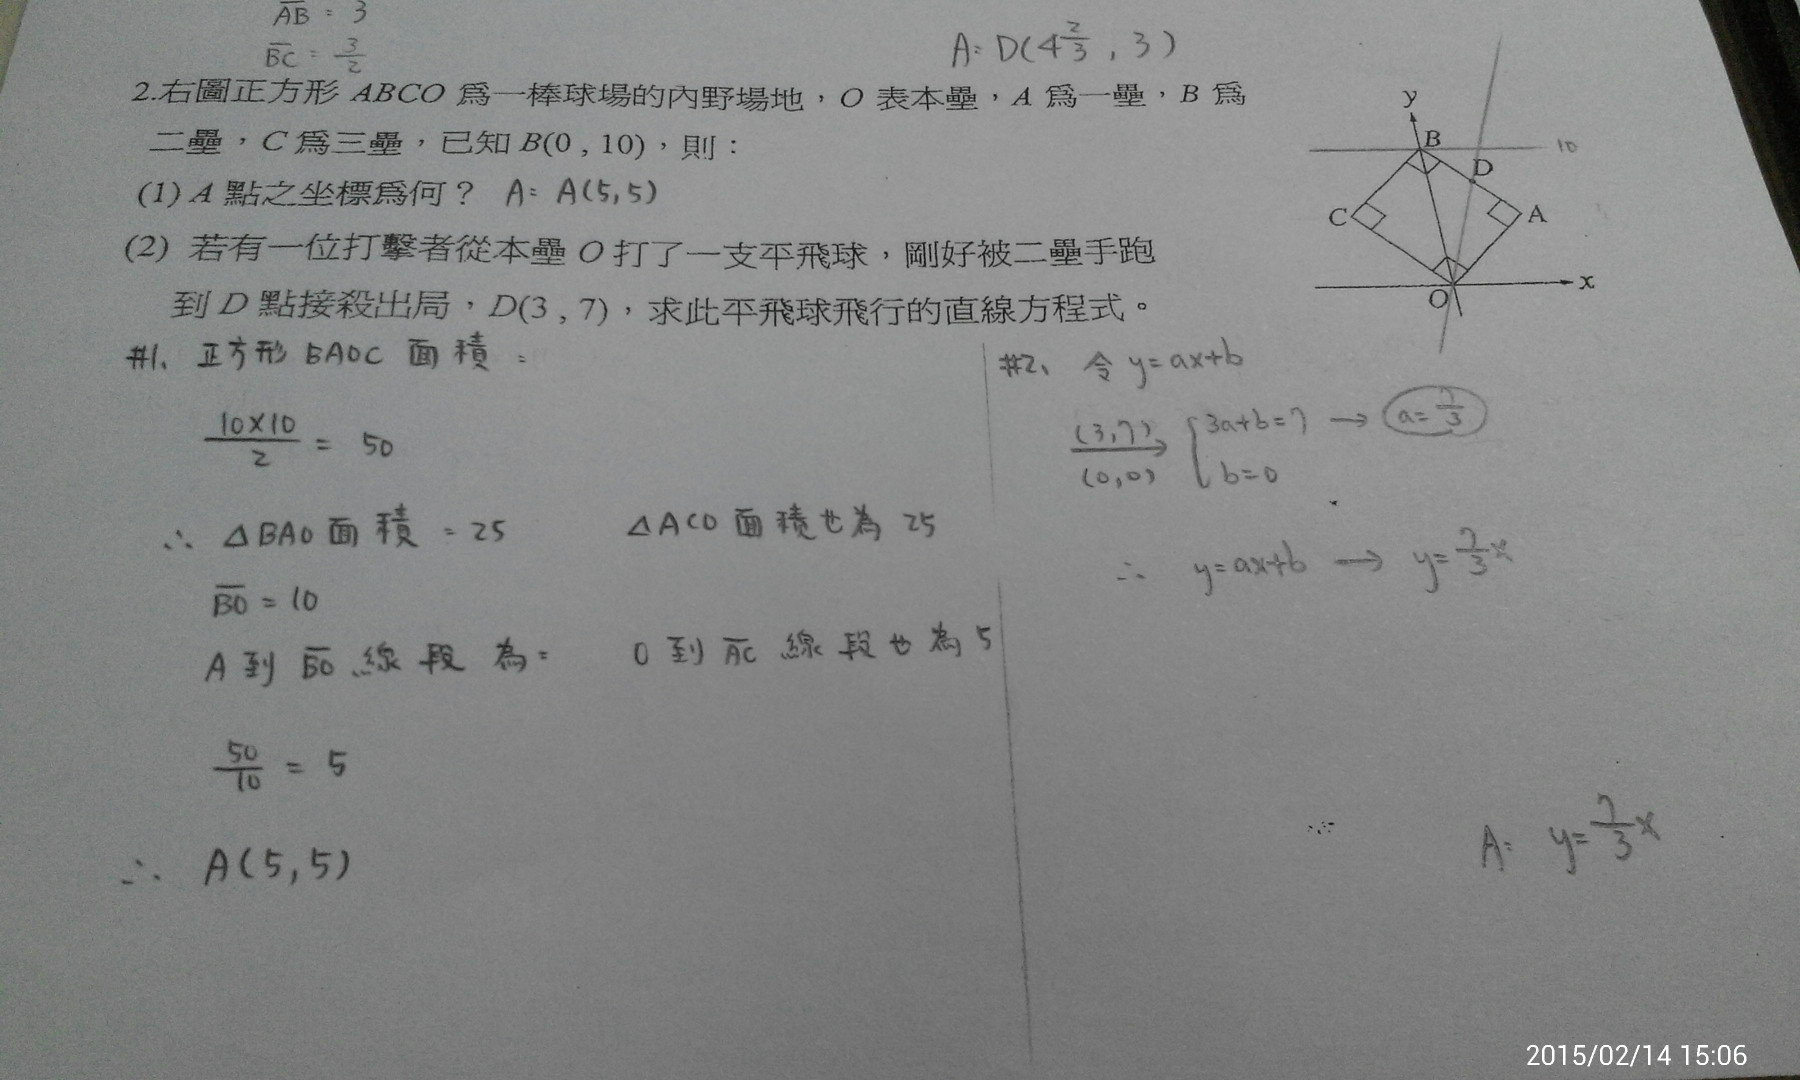 AB = 3
BC = 3/2
A: D(4 2/3 , 3)
2.右圖正方形 ABCO 為一棒球場的內野場地，O 表本壘，A 為一壘，B 為
二壘，C 為三壘，已知 B(0 , 10)，則：
(1) A 點之坐標為何？ A: A(5,5)
(2) 若有一位打擊者從本壘 O 打了一支平飛球，剛好被二壘手跑
到 D 點接殺出局，D(3 , 7)，求此平飛球飛行的直線方程式。
y
B
10
D
C
A
O
x
#1、正方形 BAOC 面積 =
10×10/2 = 50
∴ △BAO 面積 = 25 △ACO 面積也為 25
BO = 10
A 到 BO 線段 為= O 到 AC 線段也為 5
50/10 = 5
∴ A(5,5)
#2、令 y=ax+b
(3,7) 3a+b=7 → a=7/3
(0,0) b=0
∴ y=ax+b → y=7/3x
A: y=7/3x
2015/02/14 15:06